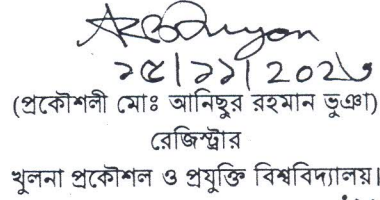 ২৫|১১|202৩
(প্রকৌশলী মোঃ আনিছুর রহমান ভূঞা)
রেজিস্ট্রার
খুলনা প্রকৌশল ও প্রযুক্তি বিশ্ববিদ্যালয়।